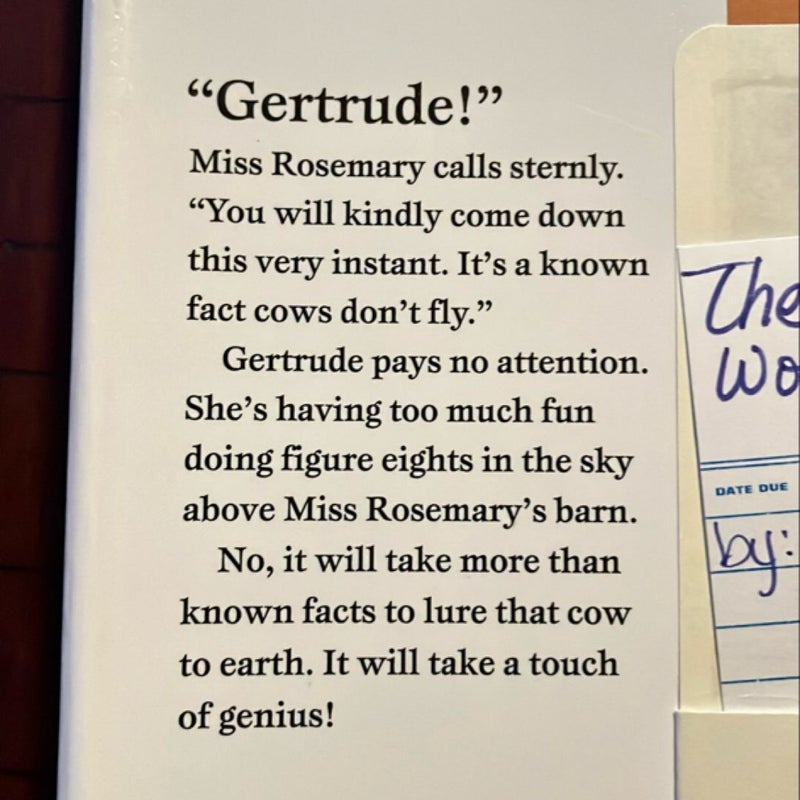 “Gertrude!”
Miss Rosemary calls sternly.
“You will kindly come down
this very instant. It’s a known
fact cows don’t fly.”
Gertrude pays no attention.
She’s having too much fun
doing figure eights in the sky
above Miss Rosemary’s barn.
No, it will take more than
known facts to lure that cow
to earth. It will take a touch
of genius!
The
Wo
DATE DUE
by: